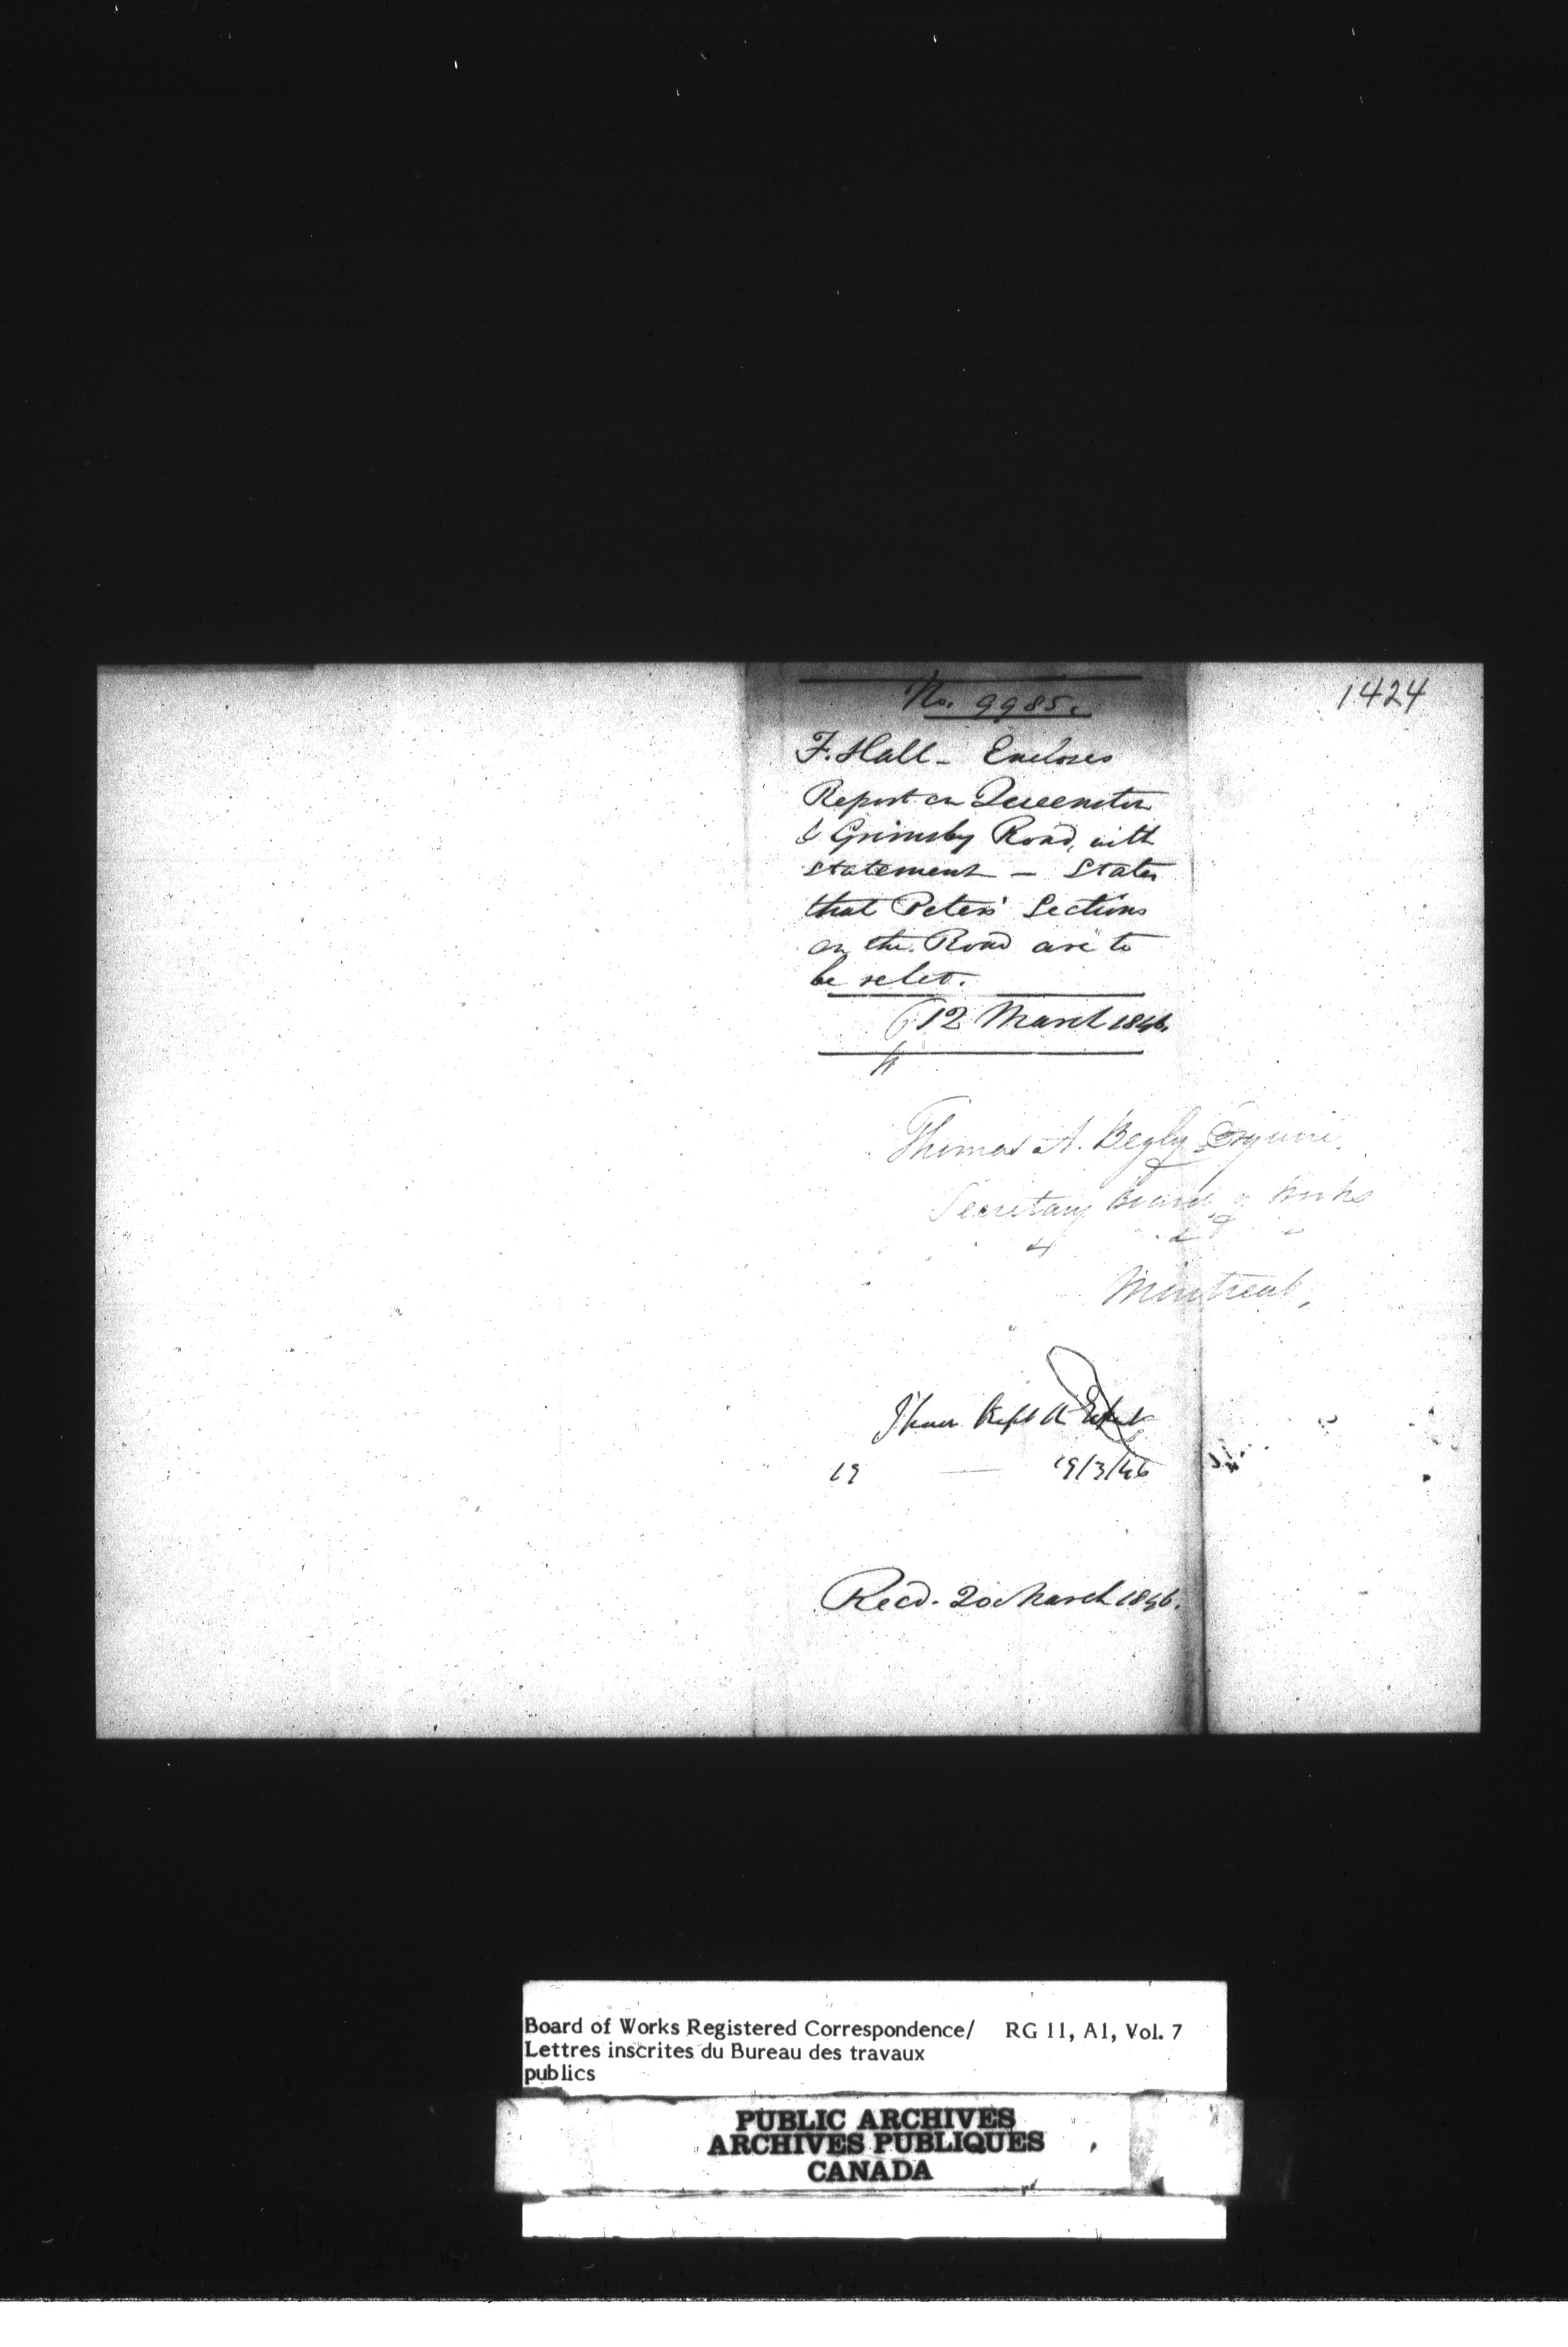 1424
No. 9985.
F. Hall - Encloses
Report on Queenston
& Grimsby Road, with
statement - States
that Peters' Sections
on the Road are to
be relet.
12 March 1846.
Thomas A. Begly Esquire.
Secretary Board of Works
Montreal,
I have kept
19 — 19/3/46
Recd. 20 March 1846.
Board of Works Registered Correspondence/ RG 11, A1, Vol. 7
Lettres inscrites du Bureau des travaux
publics
PUBLIC ARCHIVES
ARCHIVES PUBLIQUES
CANADA